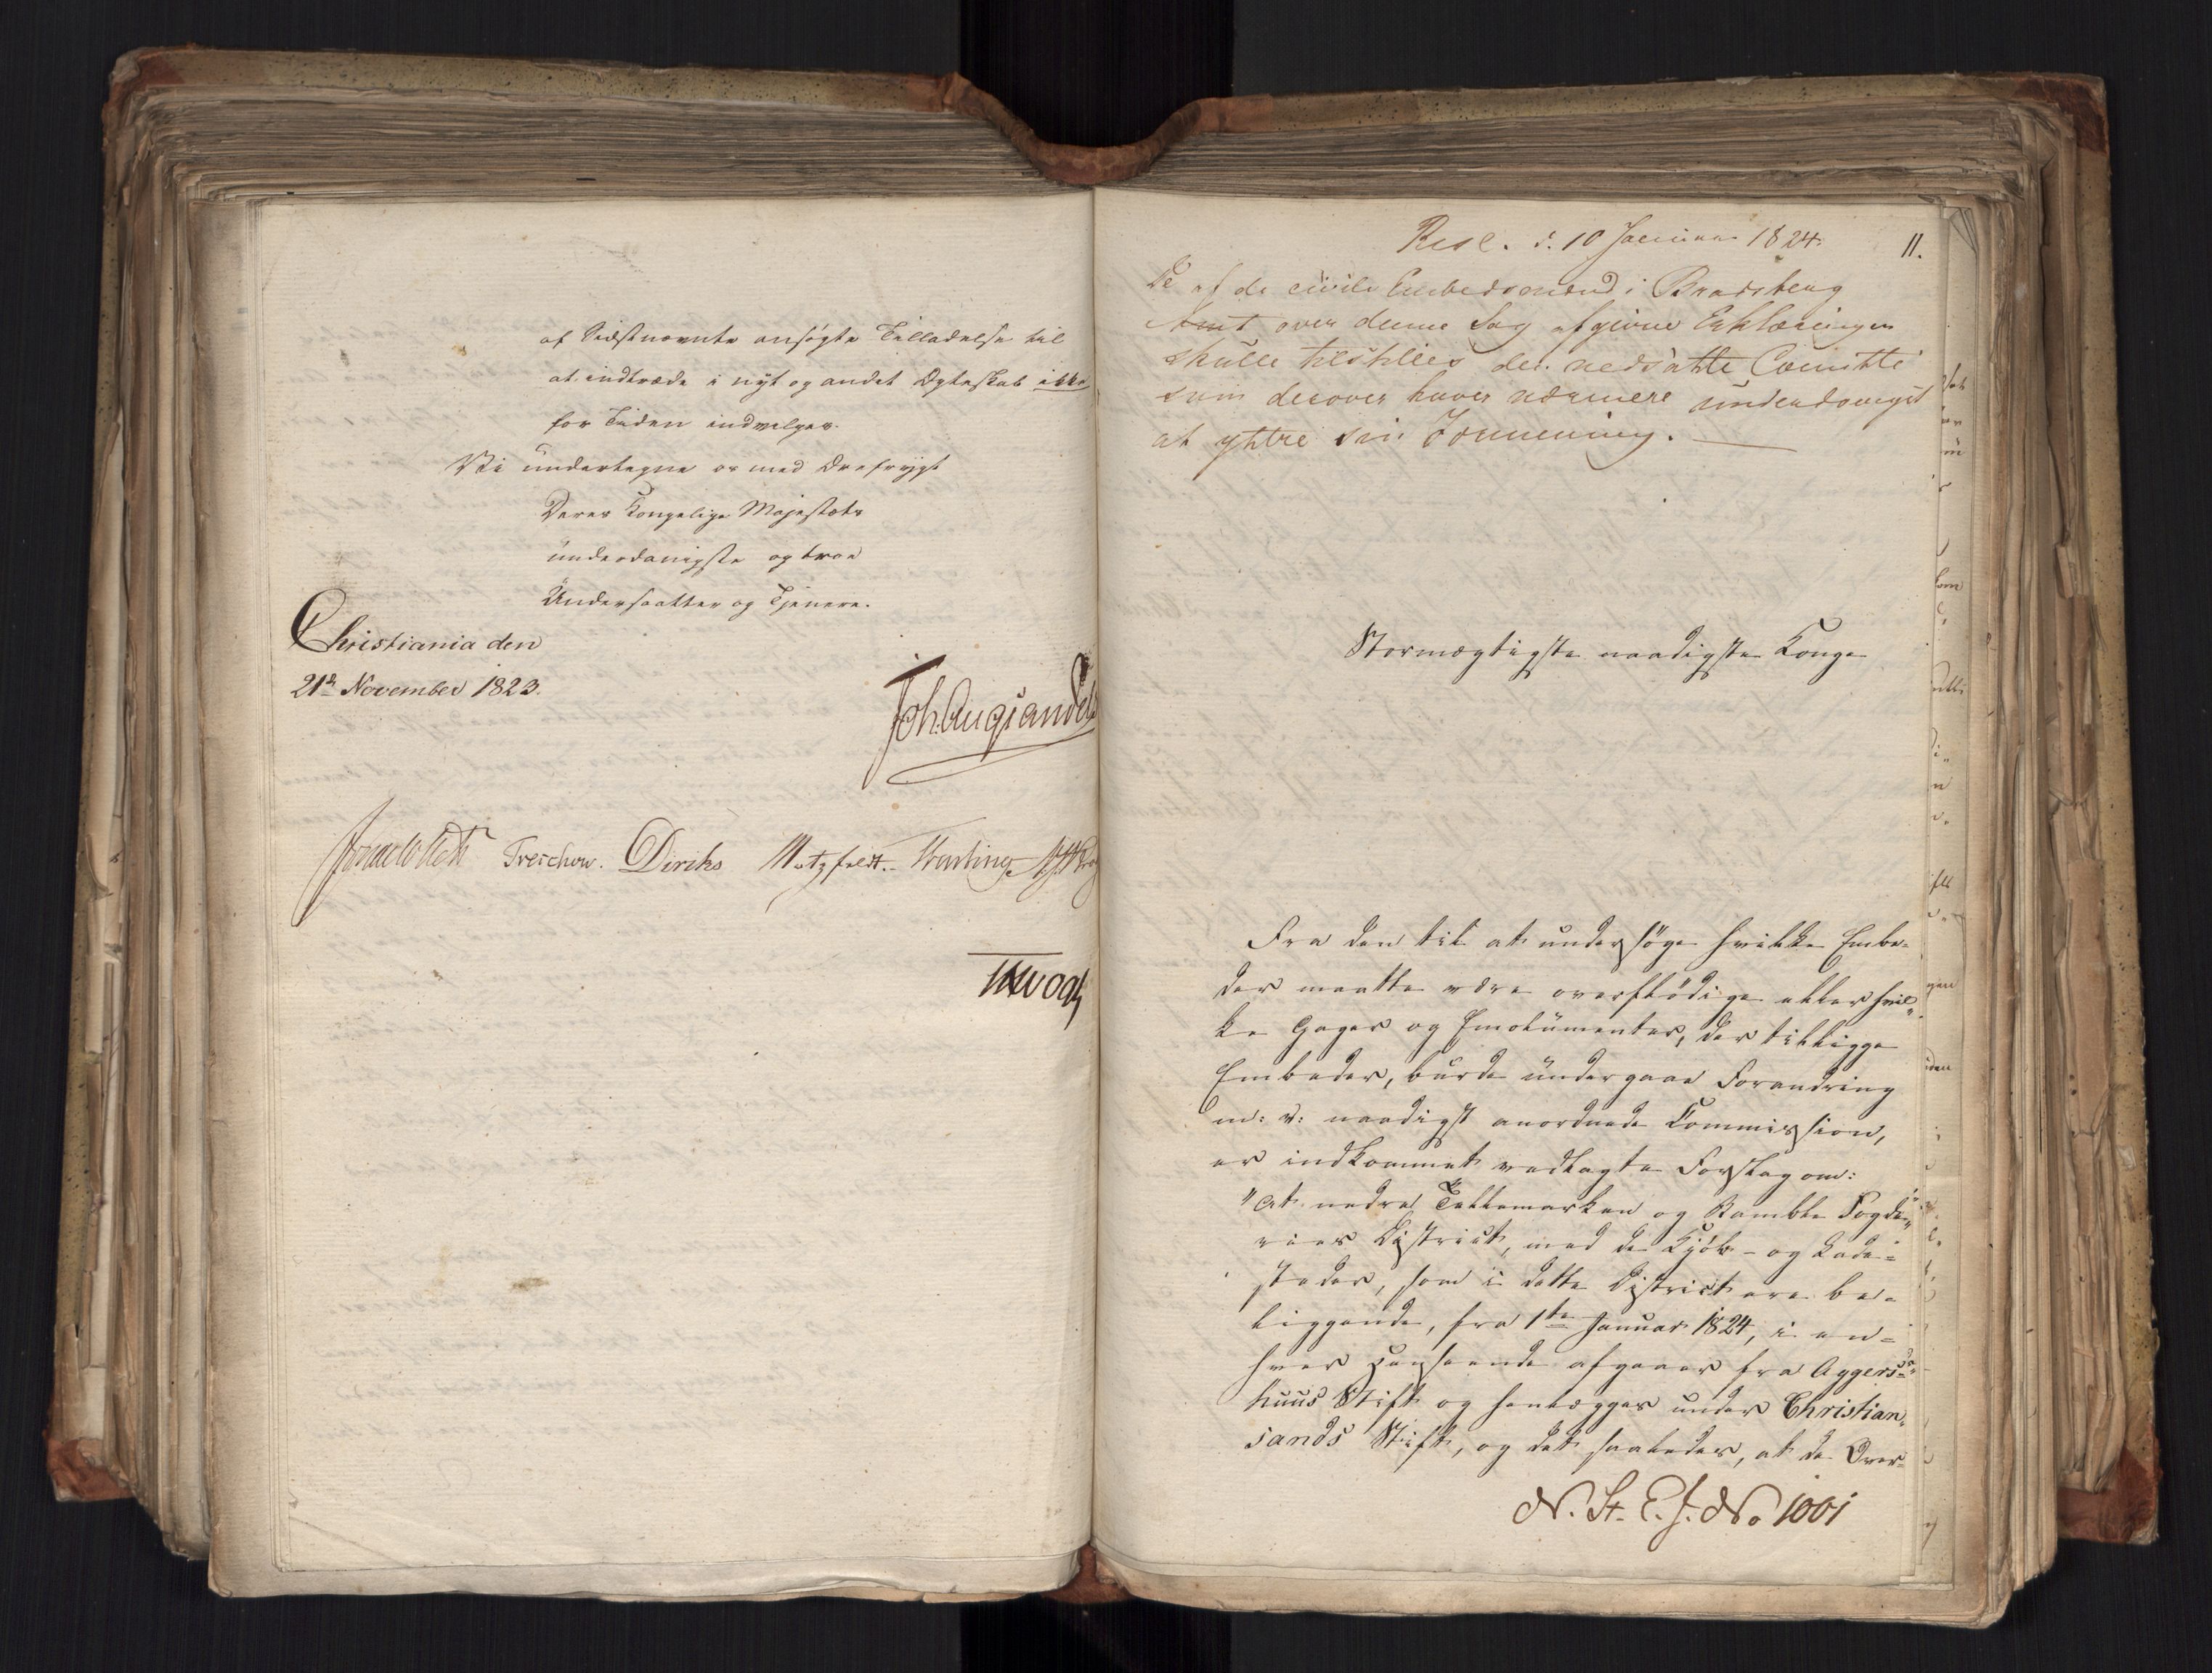 af Sidstnævnte ansøgte Tilladelse til
at indtræde i nyt og andet Ægteskab ikke
for Tiden indvilges.
Vi undertegne os med Ærefrygt
Deres Kongelige Majestæts
underdanigste og troe
Undersaatter og Tjenere.
Christiania den
21de November 1823.
Joh. Aug. Sandels
Jonas Collett Treschow. Diriks Motzfeldt. Krag
Vogt
Resl. d. 10 Januar 1824.
11.
De af de civile Embedsmænd i Bradsberg
Amt over denne Sag afgivne Erklæringer
skulle tilstilles den nedsatte Comitté
som derover haver nærmere underdanigst
at yttre sin Formening.
Stormægtigste naadigste Konge
Fra den til at undersøge hvilke Embe-
der maatte være overflødige eller hvil-
ke Gager og Emolumenter, der tilligge
Embeder, burde undergaae Forandring
m: v: naadigst anordnede Commission,
er indkommet vedlagte Forslag om:
"at nedre Tellemarken og Bamble Fogde-
riers District, med de Kjøb- og Lade-
steder, som i dette District ere be-
liggende, fra 1te Januar 1824, i en-
hver Henseende afgaaer fra Aggers-
huus Stift og henlægges under Christian-
sands Stift, og det saaledes, at de Over-
N. St. E. J. No 1001